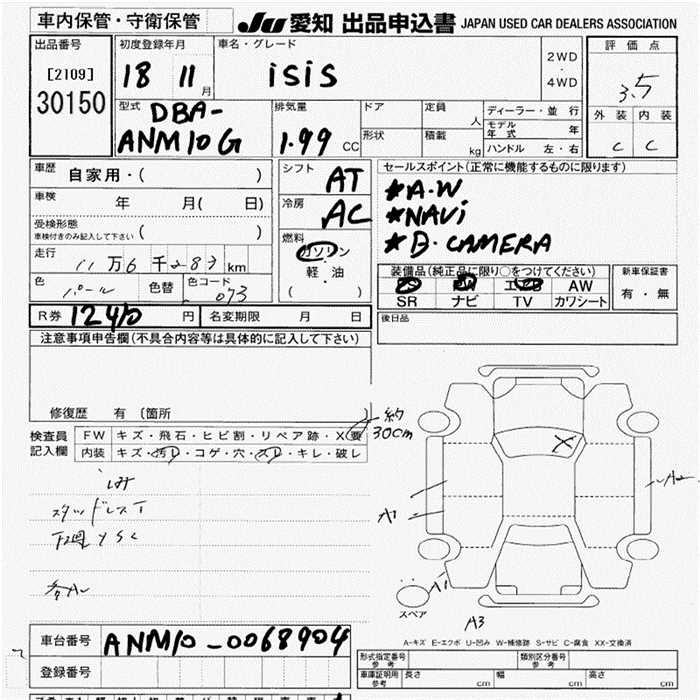 車内保管・守衛保管
JU 愛知 出品申込書 JAPAN USED CAR DEALERS ASSOCIATION
出品番号
[2109]
30150
初度登録年月
18 11 月
車名・グレード
isis
2WD
・
4WD
評価点
3.5
外装 内装
C C
型式
DBA-
ANM10G
排気量
1.99 CC
ドア
形状
定員
人
積載
kg
ディーラー・並行
モデル年式 年
ハンドル 左・右
車歴 自家用・( )
車検 年 月( 日)
受検形態
車検付きのみ記入して下さい ( )
走行 11万6千283km
色 パール 色替 色コード 073
シフト AT
冷房 AC
燃料
ガソリン
・
軽油
( )
セールスポイント(正常に機能するものに限ります)
*A.W
*NAVi
*B.CAMERA
装備品(純正品に限り○をつけてください)
PS PW エアB AW
SR ナビ TV カワシート
新車保証書
有・無
R券 12410 円 名変期限 月 日
後日品
注意事項申告欄(不具合内容等は具体的に記入して下さい)
修復歴 有 〔箇所 〕
約
30cm
検査員
記入欄
FW キズ・飛石・ヒビ割・リペア跡・X(要)
内装 キズ・汚レ・コゲ・穴・スレ・キレ・破レ
スタッドレスT
下廻りSC
各AL
X
A2
A1
A1
A3
スペア
A-キズ E-エクボ U-凹み W-補修跡 S-サビ C-腐食 XX-交換済
車台番号 ANM10-0068904
登録番号
形式指定番号
参考
類別区分番号
参考
車庫証明用
参考
長さ cm 幅 cm 高さ cm